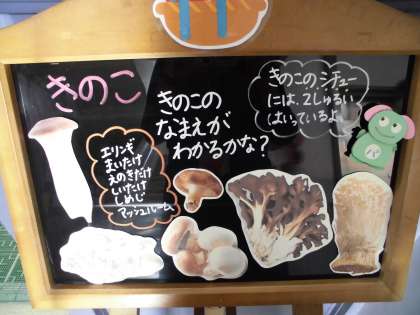 きのこ
きのこの
なまえが
わかるかな?
きのこの、シチュー
には、2しゅるい
はいっているよ
エリンギ
まいたけ
えのきだけ
しいたけ
しめじ
マッシュルーム